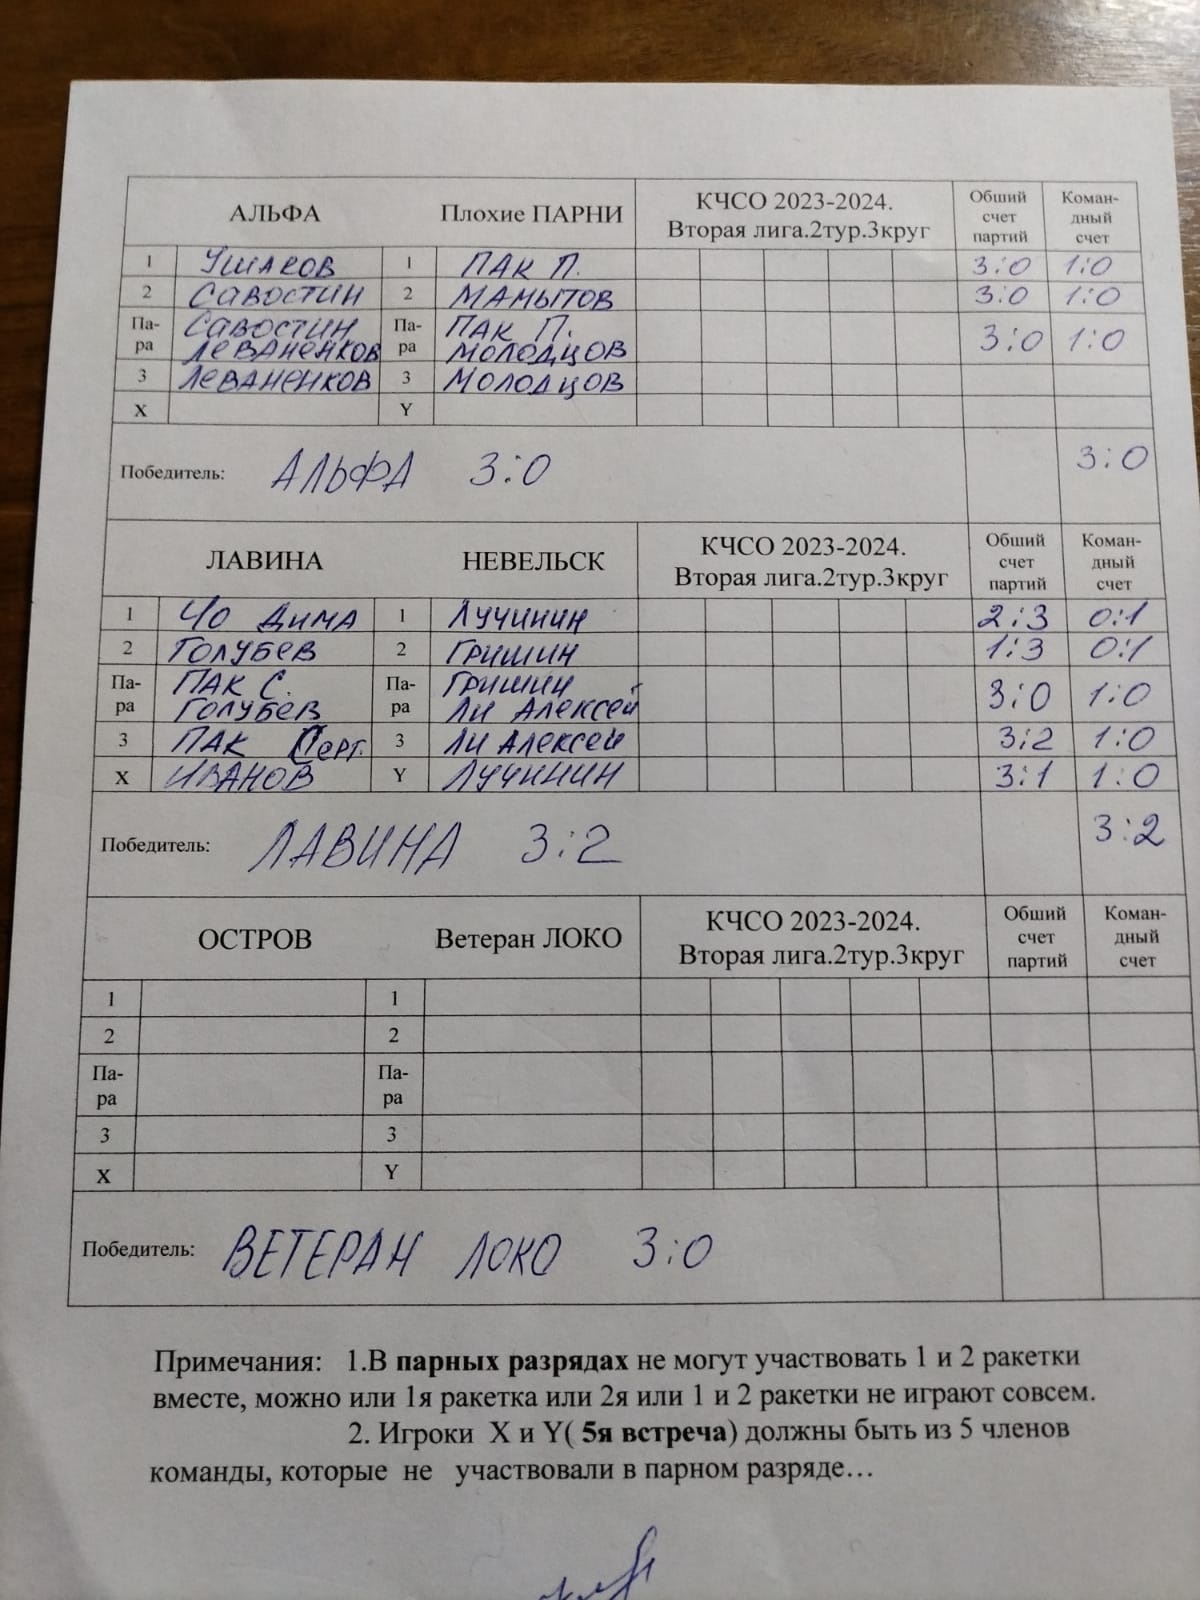 АЛЬФА Плохие ПАРНИ КЧСО 2023-2024. Вторая лига.2тур.3круг Обший счет партий Коман-дный счет
1 Ушаков 1 ПАК П. 3:0 1:0
2 Савостин 2 МАМЫТОВ 3:0 1:0
Па-ра Савостин Леваненков Па-ра ПАК П. МОЛОДЦОВ 3:0 1:0
3 Леваненков 3 МОЛОДЦОВ
X Y
Победитель: АЛЬФА 3:0 3:0
ЛАВИНА НЕВЕЛЬСК КЧСО 2023-2024. Вторая лига.2тур.3круг Обший счет партий Коман-дный счет
1 ЧО ДИМА 1 ЛУЧИНИН 2:3 0:1
2 ГОЛУБЕВ 2 ГРИШИН 1:3 0:1
Па-ра ПАК С. ГОЛУБЕВ Па-ра ГРИШИН ЛИ АЛЕКСЕЙ 3:0 1:0
3 ПАК Серг. 3 ЛИ АЛЕКСЕЙ 3:2 1:0
X ИВАНОВ Y ЛУЧИНИН 3:1 1:0
Победитель: ЛАВИНА 3:2 3:2
ОСТРОВ Ветеран ЛОКО КЧСО 2023-2024. Вторая лига.2тур.3круг Обший счет партий Коман-дный счет
1 1
2 2
Па-ра Па-ра
3 3
X Y
Победитель: ВЕТЕРАН ЛОКО 3:0
Примечания: 1.В парных разрядах не могут участвовать 1 и 2 ракетки
вместе, можно или 1я ракетка или 2я или 1 и 2 ракетки не играют совсем.
2. Игроки X и Y( 5я встреча) должны быть из 5 членов
команды, которые не участвовали в парном разряде…